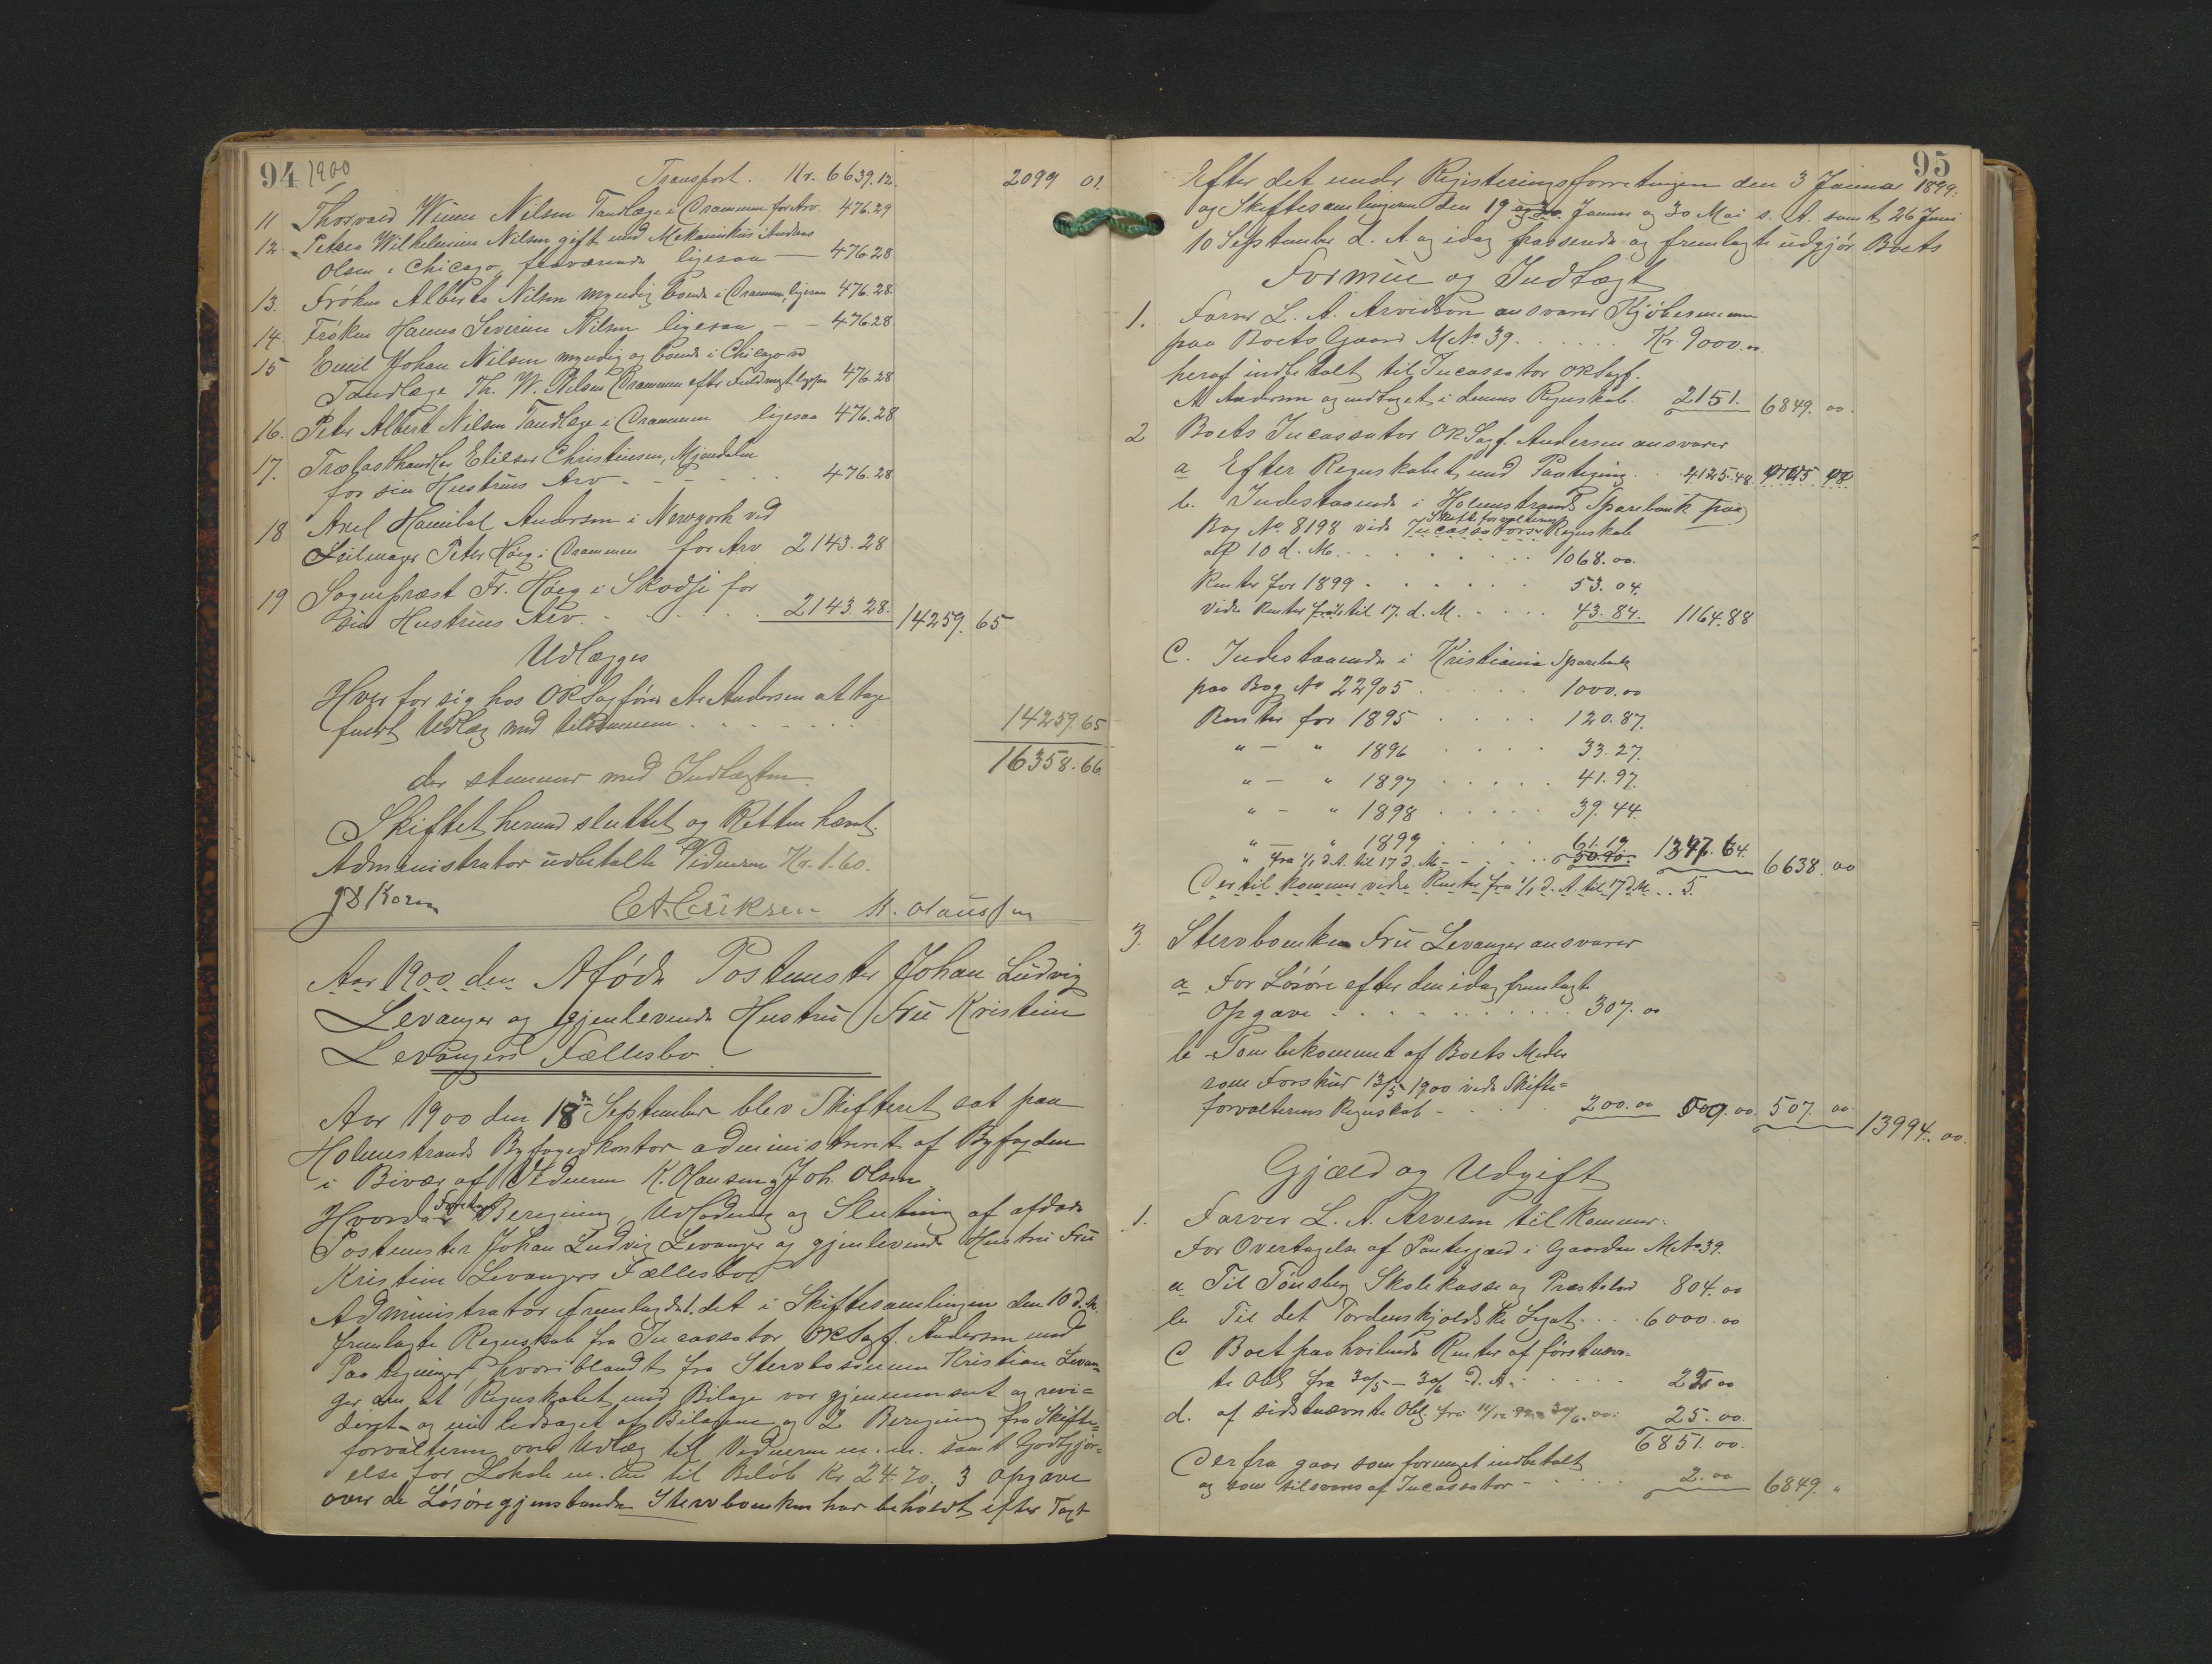 94 1900
Transport. Kr. 6639.12. 2099 01.
11 Thorvald Winn Nilsen Tandlæge i Drammen for Arv. 476.29
12. Petrea Wilhelmine Nilsen gift med Mekanikus Andreas
Olsen i Chicago, fraværende ligesaa — 476.28
13. Frøken Alberta Nilsen myndig boende i Drammen, ligesaa 476.28.
14. Frøken Hanna Severine Nilsen ligesaa — — 476.28
15 Emil Johan Nilsen myndig og boende i Chicago ved
Tandlæge Th. W. Nilsen Drammen efter Fuldmagt ligesaa 476.28
16. Peter Albert Nilsen Tandlæge i Drammen ligesaa 476.28
17. Trælasthandler Elieser Christensen, Mjøndalen
for sin Hustrues Arv - - - - - 476.28
18 Axel Hannibal Andersen i Newyork ved
Seilmager Peter Høeg i Drammen for Arv 2143.28
19 Sognepræst Fr. Høeg i Skodje for
sin Hustrues Arv. . . . . 2143.28. 14259. 65
Udlægges
Hver for sig hos ORSagfører A. Andersen at tage
fuldt Udlæg med tilsammen . . . . . 14259.65
16358.66
der stemmer med Indtægten.
Skiftet hermed sluttet og Retten hævet.
Administrator udbetalte Vidnerne Kr. 1.60.
Koren E.A. Eriksen K. Olaussen
Aar 1900 den Afdøde Postmester Johan Ludvig
Levanger og gjenlevende Hustru Fru Kristine
Levangers Fællesbo
Aar 1900 den 18de September blev Skifteret sat paa
Holmestrands Byfogedkontor administreret af Byfogden
i Bivær af Vidnerne K. Olausen og Joh. Olsen
Hvorda Foretoges Beregning, Udlodning og Slutning af afdøde
Postmester Johan Ludvig Levanger og gjenlevende Hustru Fru
Kristine Levangers Fællesbo
Administrator fremlagde 1. det i Skiftesamlingen den 10 d.M.
fremlagte Regnskab fra Incassator ORSagf. Andersen med
Paategninger, hvoriblandt fra Stervbosønnen Kristian Levan-
ger om at Regnskabet med Bilage var gjennemseet og revi=
deret og ledsaget af Bilagene og 2 Beregning fra Skifte=
forvalteren over Udlæg til Vidnerne m.m. samt Godtgjør=
else for Lokale m.m. til Beløb Kr 24.70. 3 Opgave
over de Løsøregjenstande Stervboenken har beholdt efter Taxt
95
Efter det under Registreringsforretningen den 3 Januar 1899.
og Skiftesamlingerne den 19 og 30. Januar og 30 Mai s. A. samt 26 Juni
10 September d. A. og idag passerede og fremlagte udgjør Boets
Formue og Indtægt
1. Farver L. A. Arvidson ansvarer Kjøbesummen
paa Boets Gaard M.No. 39. . . . . . Kr. 9000.00
heraf indbetalt til Incassator ORSagf.
A. Andersen og indtaget i dennes Regnskab. 2151. 6849. 00.
2 Boets Incassator ORSagf. Andersen ansvarer
a Efter Regnskabet med Paategning . . 4125.48.
b. Indestaaende i Holmestrands Sparebank paa
Bog No. 8198 vide Skifteforvalterens Incassators Regnskab
af 10 d. M. . . . . . . . 1068.00.
Renter for 1899 . . . . . 53.04.
vide Renter fra til 17. d. M. . . . . 43.84. 1164.88
C. Indestaaende i Kristiania Sparebank
paa Bog No 22905 . . . . . 1000.00
Renter for 1895 . . . . 120.87.
" — " 1896 . . . . 33.27.
" — " 1897 . . . . 41.97.
" — " 1898 . . . . 39.44.
" — " 1899 . . . . 61.19
" fra 1/1 d.A. til 17 d.M. - - . . . 50.90. 1347.64. 6638. 00
Dertil kommer videre Renter fra 1/1 d. A. til 17 d.M. . . 5.
3. Stervboenken Fru Levanger ansvarer
a For Løsøre efter den idag fremlagte
Opgave . . . . . . . . . 307.00
b Som bekommet af Boets Midler
som Forskud 13/5 1900 vide Skifte=
forvalterens Regnskab - . . . . 200.00 507.00. 507. 00
13994. 00.
Gjæld og Udgift
1. Farver L. A. Arvesen tilkommer.
For Overtagelse af Pantegjæld i Gaarden M.No. 39.
a Til Tønsberg Skolekasse og Præstebol 804.00
b Til det Tordenskjoldske Legat . . . . 6000.00
C Boet paahvilende Renter af førstnævn-
te Obl. fra 30/5 — 30/6 d. A. . . . . . 22.00
d. af sidstnævnte Obl. fra 11/12 99 - 30/6. 00. 25.00.
6851.00.
Derfra gaar som formeget indbetalt
og som tilsvares af Incassator - . . . . . 2.00 6849. "